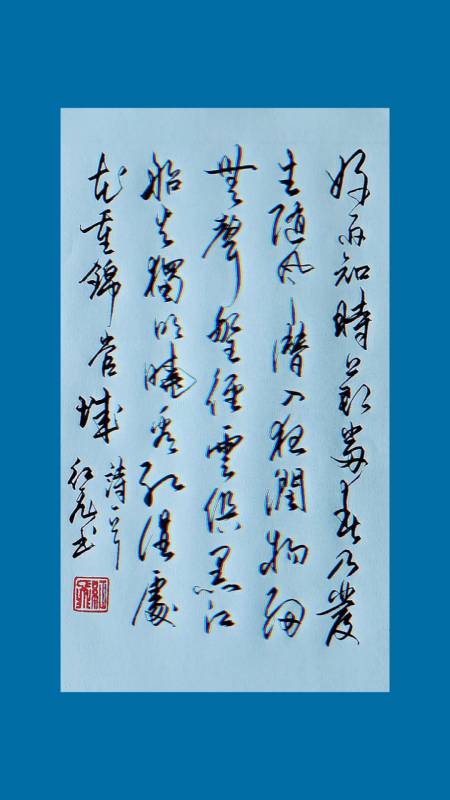 好雨知時節當春乃發
生隨風潛入夜潤物細
無聲野徑雲俱黑江
船火獨明曉看紅濕處
花重錦官城
詩一首
书